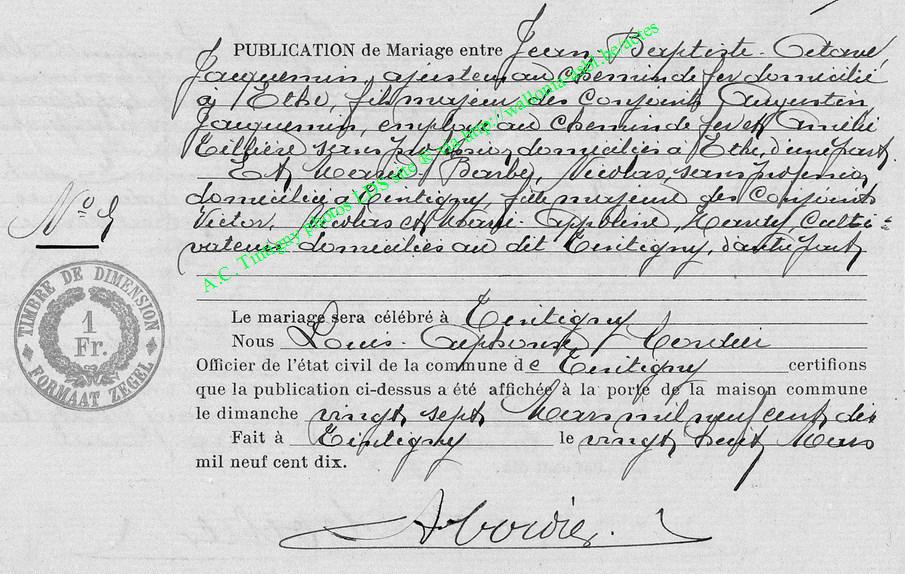 PUBLICATION de Mariage entre Jean-Baptiste-Octave
Jacquemin, ajusteur au chemin de fer domicilié
à Ethe, fils majeur des conjoints Augustin
Jacquemin, employé au chemin de fer et Amélie
sans profession, domiciliés à Ethe, d'une part,
Et Marie-Barbe, Nicolas, sans profession
domiciliée à Tintigny, fille majeure des conjoints
Victor, Nicolas et Marie-Appoline, Culti=
vateurs, domiciliés au dit Tintigny, d'autre part
Nº 5
TIMBRE DE DIMENSION
1
Fr.
FORMAAT ZEGEL
Le mariage sera célébré à Tintigny
Nous Louis-Alphonse
Officier de l'état civil de la commune de Tintigny certifions
que la publication ci-dessus a été affichée à la porte de la maison commune
le dimanche vingt sept Mars mil neuf cent dix
Fait à Tintigny le vingt sept Mars
mil neuf cent dix.
A.C. Tintigny photos LDS site © via http://wallonia-asbl.be/actes